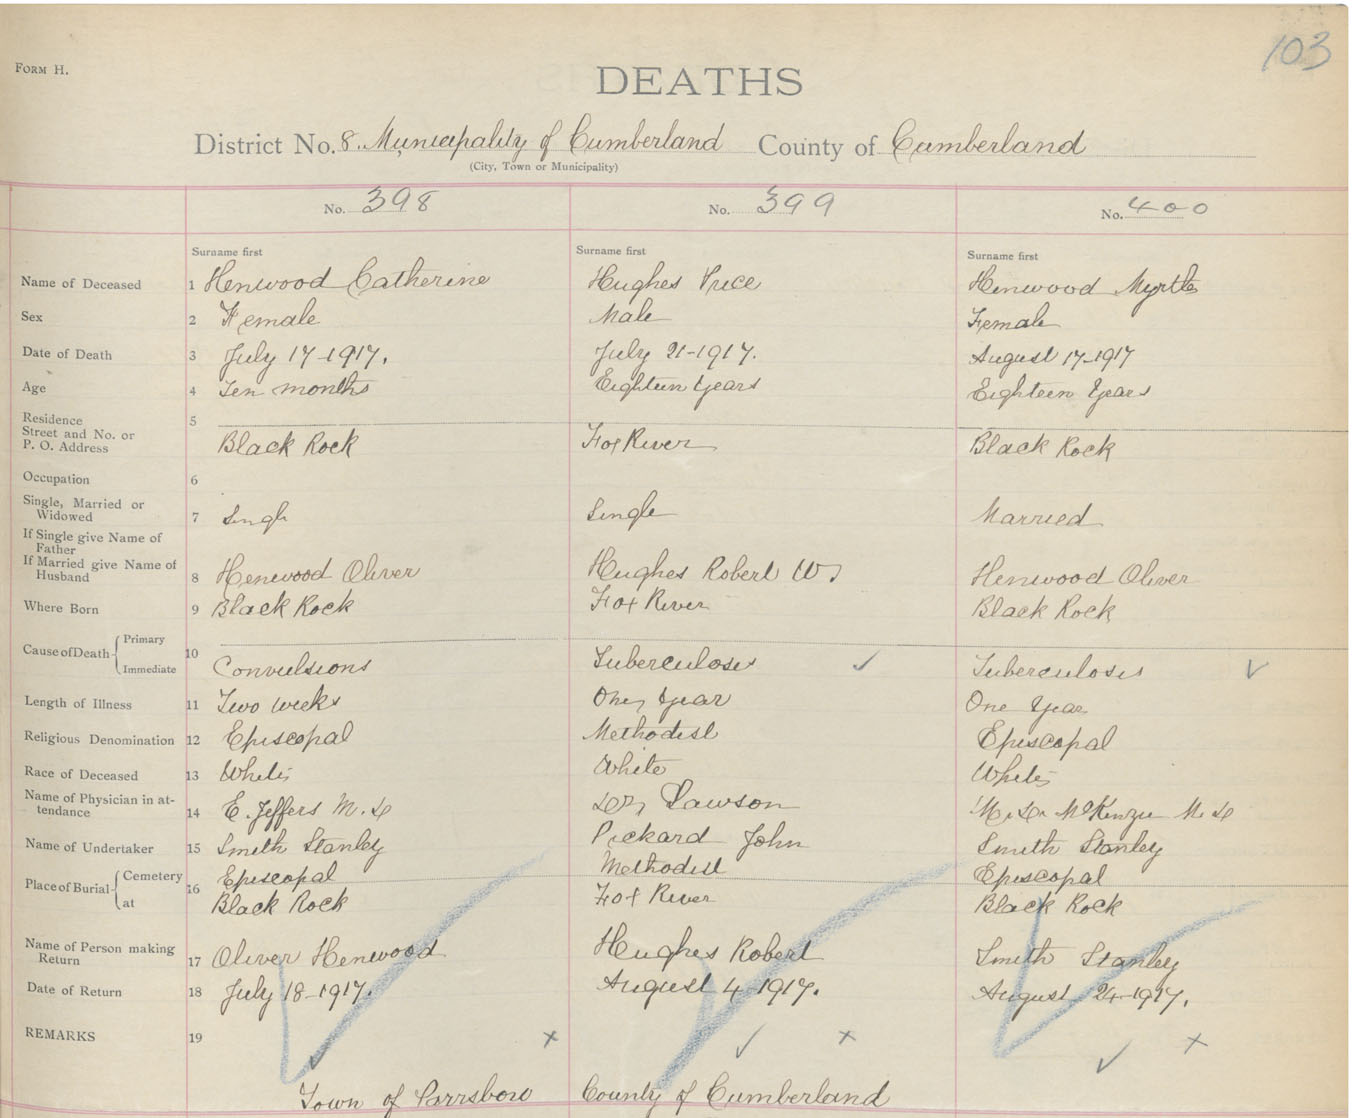 103
FORM H.
DEATHS
District No. 8. Municipality of Cumberland County of Cumberland
(City, Town or Municipality)
No. 398 No. 399 No. 400
Surname first Surname first Surname first
Name of Deceased 1 Henwood Catherine Hughes Price Henwood Myrtle
Sex 2 Female Male Female
Date of Death 3 July 17-1917. July 21-1917. August 17-1917
Age 4 Ten months Eighteen Years Eighteen Years
Residence 5
Street and No. or
P. O. Address Black Rock Fox River Black Rock
Occupation 6
Single, Married or
Widowed 7 Single Single Married
If Single give Name of
Father
If Married give Name of
Husband 8 Henwood Oliver Hughes Robert W. Henwood Oliver
Where Born 9 Black Rock Fox River Black Rock
Cause of Death Primary 10
Immediate Convulsions Tuberculosis ✓ Tuberculosis ✓
Length of Illness 11 Two weeks One Year One Year
Religious Denomination 12 Episcopal Methodist Episcopal
Race of Deceased 13 White White White
Name of Physician in at-
tendance 14 E. Jeffers M.D Dr Lawson McKenzie M.D
Name of Undertaker 15 Smith Stanley Pickard John Smith Stanley
Place of Burial Cemetery 16 Episcopal Methodist Episcopal
at Black Rock Fox River Black Rock
Name of Person making
Return 17 Oliver Henwood Hughes Robert Smith Stanley
Date of Return 18 July 18-1917. August 4-1917. August 24-1917.
REMARKS 19 ✓ x ✓ x ✓ x
Town of Parrsboro County of Cumberland